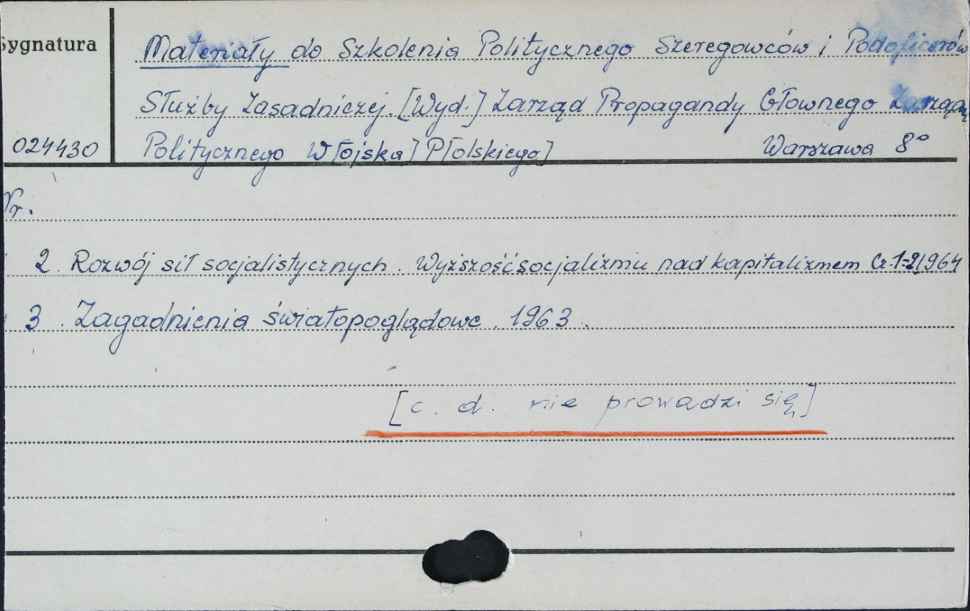 Sygnatura
Materiały do Szkolenia Politycznego Szeregowców i Podoficerów
Służby Zasadniczej. [Wyd.] Zarząd Propagandy Głownego Zarządu
024430 Politycznego W[ojska] P[olskiego] Warszawa 8°
Nr.
2. Rozwój sił socjalistycznych. Wyższość socjalizmu nad kapitalizmem Cz. 1-2 1964
3. Zagadnienia światopoglądowe. 1963.
[c. d. nie prowadzi się]